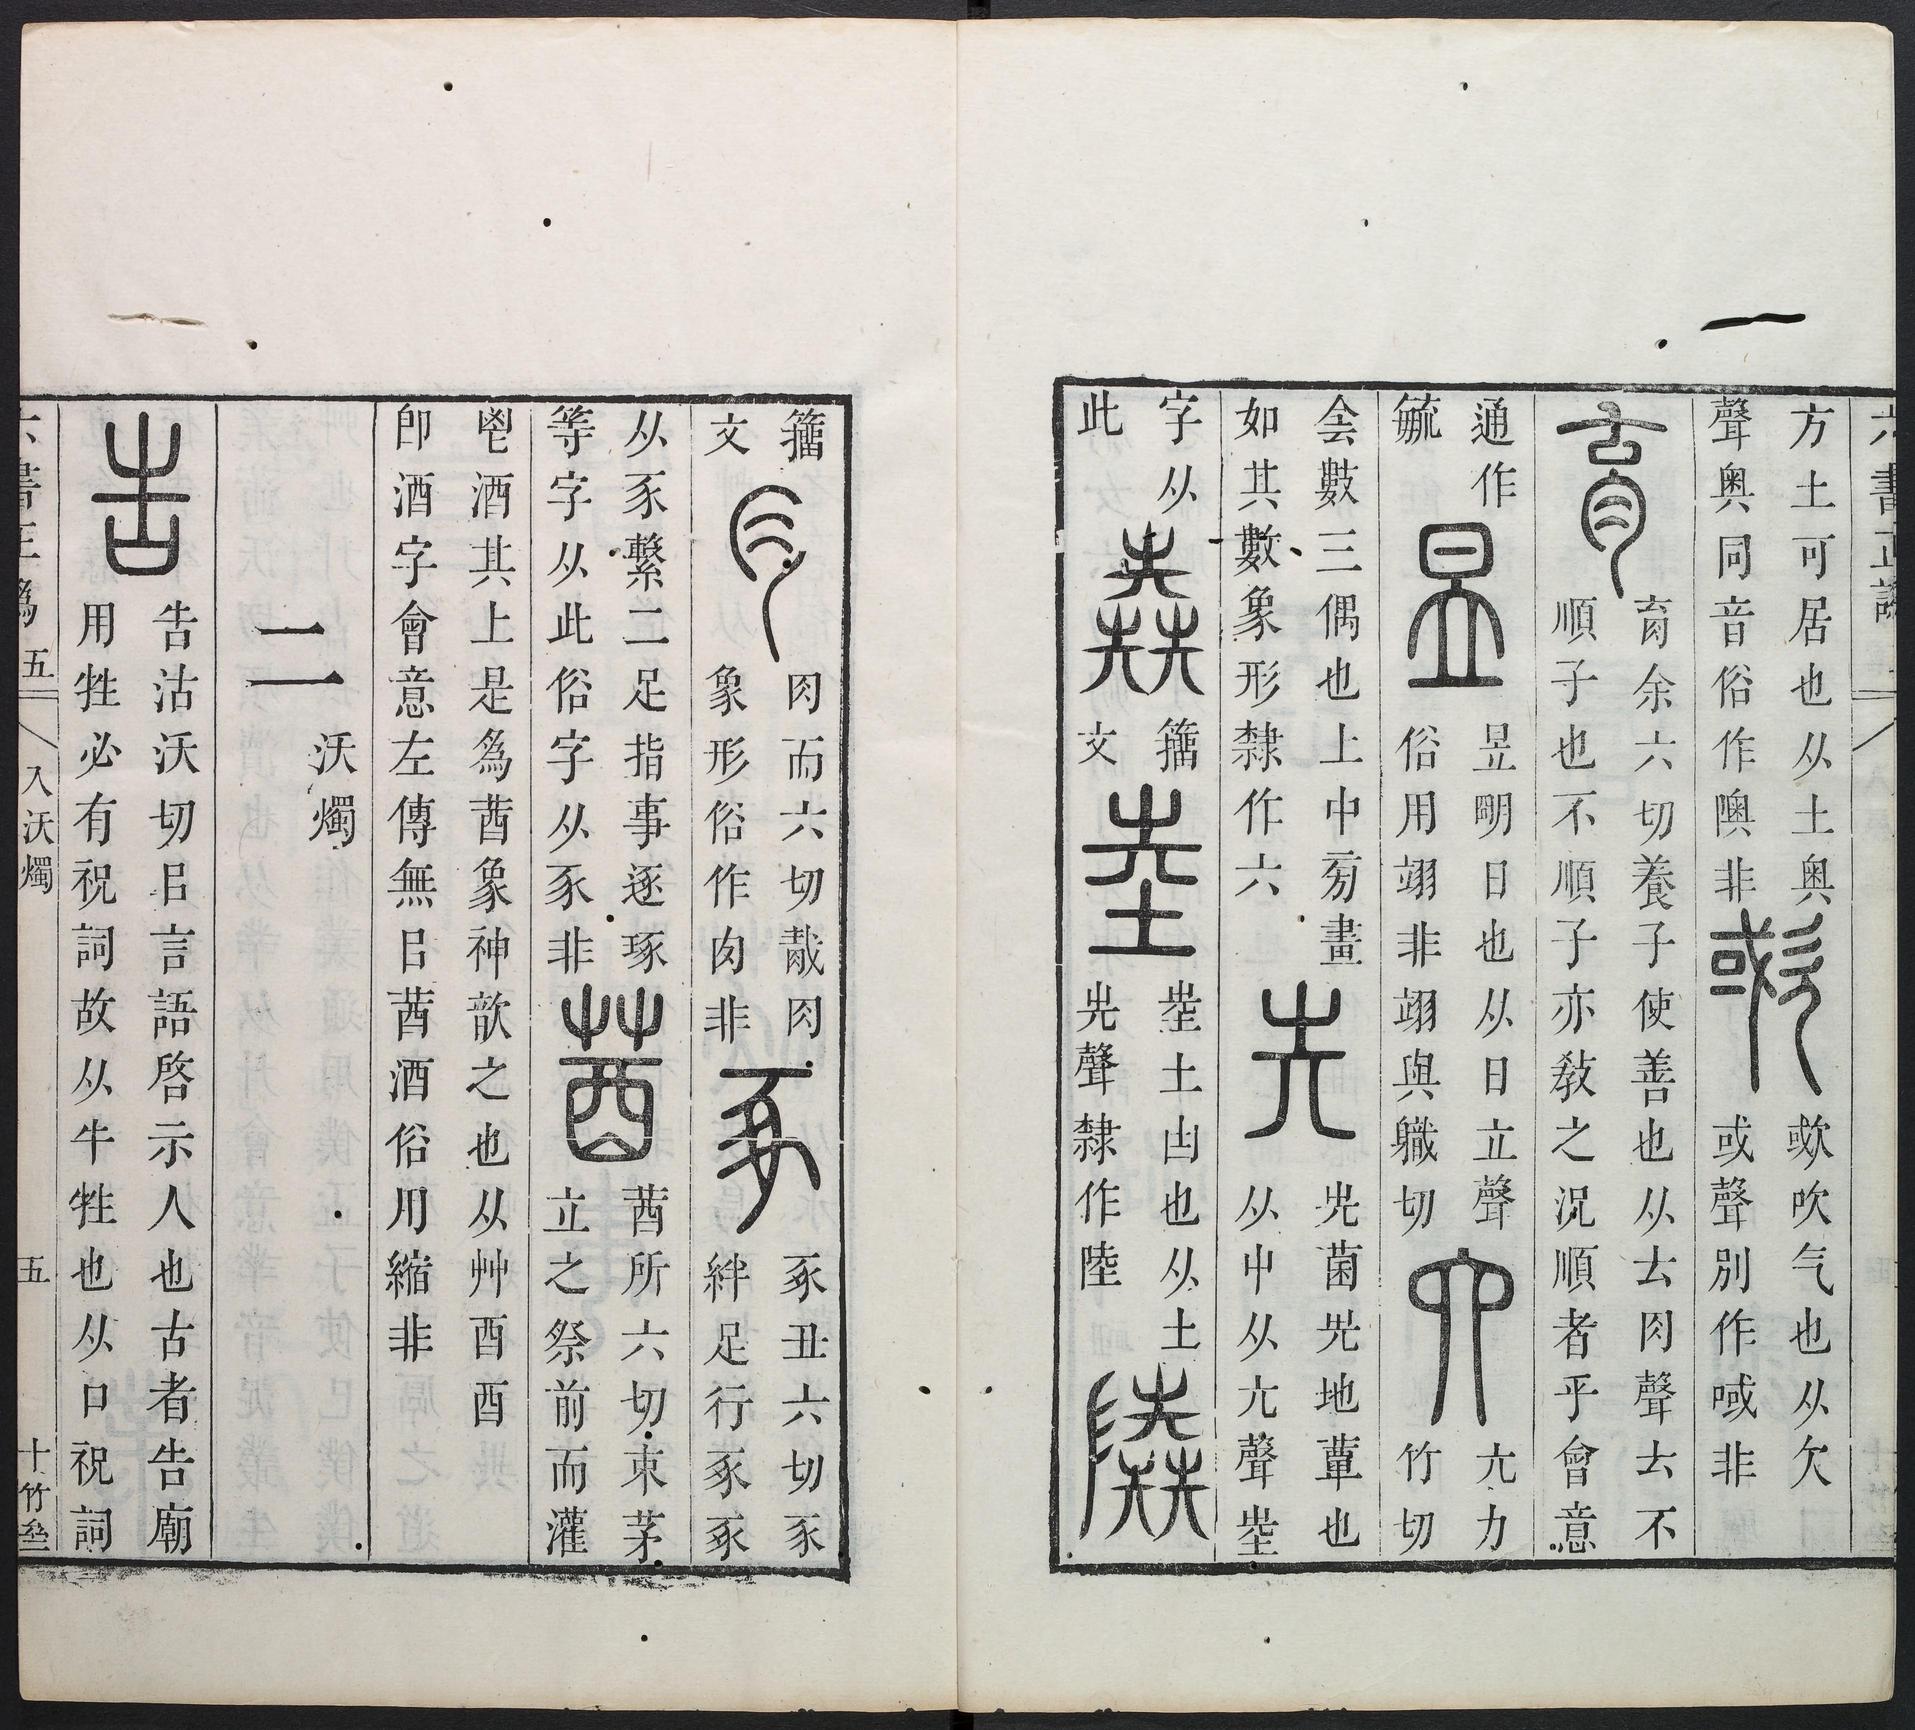 六書正譌
方土可居也从土奧
聲奧同音俗作隩非
欥吹气也从欠
或聲別作㖪非
育余六切養子使善也从𠫓肉聲𠫓不
順子也不順子亦教之況順者乎會意
通作
毓
昱明日也从日立聲
俗用翊非翊與職切
六力
竹切
会數三偶也上中㫄畫
如其數象形隸作六
圥菌圥地蕈也
从屮从六聲坴
字从
此
籀
文
坴土凷也从土
圥聲隸作陸
籀
文
肉而六切胾肉
象形俗作肉非
豖丑六切豖
絆足行豖豖
从豕繫二足指事逐琢
等字从此俗字从豕非
莤所六切束茅
立之祭前而灌
鬯酒其上是爲莤象神歆之也从艸酉酉
卽酒字會意左傳無㠯莤酒俗用縮非
二
沃燭
告沽沃切㠯言語啓示人也古者告廟
用牲必有祝詞故从牛牲也从口祝詞
六書正譌 五 入沃燭 五 十竹齋